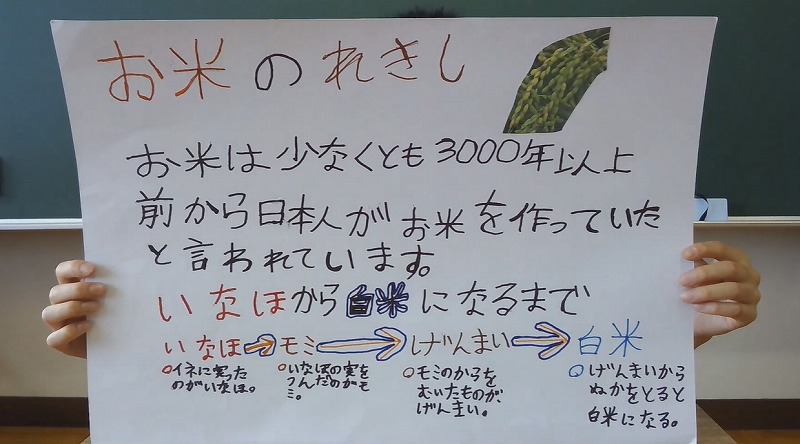 お米のれきし
お米は少なくとも3000年以上
前から日本人がお米を作っていた
と言われています。
いなほから白米になるまで
いなほ→モミ→げんまい→白米
○イネに実った
のがいなほ。
○いなほの実を
つんだのがモ
ミ。
○モミのからを
むいたものが、
げんまい。
○げんまいから
ぬかをとると
白米になる。